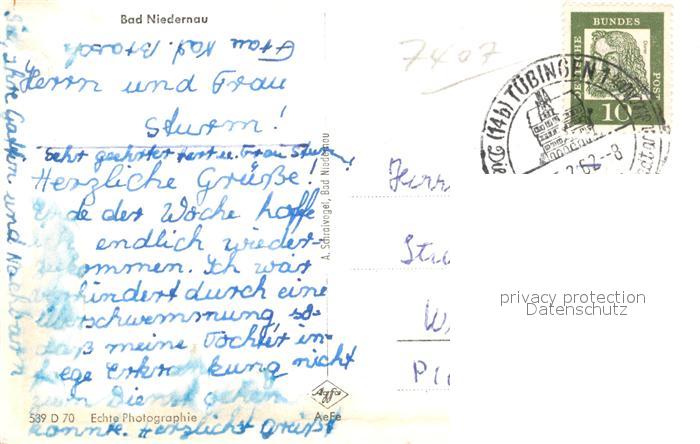 Bad Niedernau
Frau Nad. Brasch
Herrn und Frau
Sturm!
Sehr geehrter Herr u. Frau Sturm!
Herzliche Grüße!
Ende der Woche hoffe
ich endlich wieder-
zukommen. Ich war
verhindert durch eine
Überschwemmung, so-
daß meine Tochter in-
folge Erkrankung nicht
zum Dienst gehen
konnte. Herzlichst grüßt
Sie, Ihre Gattin und Nachbarn
A. Schraivogel, Bad Niedernau
539 D 70 Echte Photographie
Agfa
AeFe
7407
DEUTSCHE BUNDES POST
Dürer
10
(14b) TÜBINGEN 1
62--8
Herr
Stu
W
Pl
privacy protection
Datenschutz